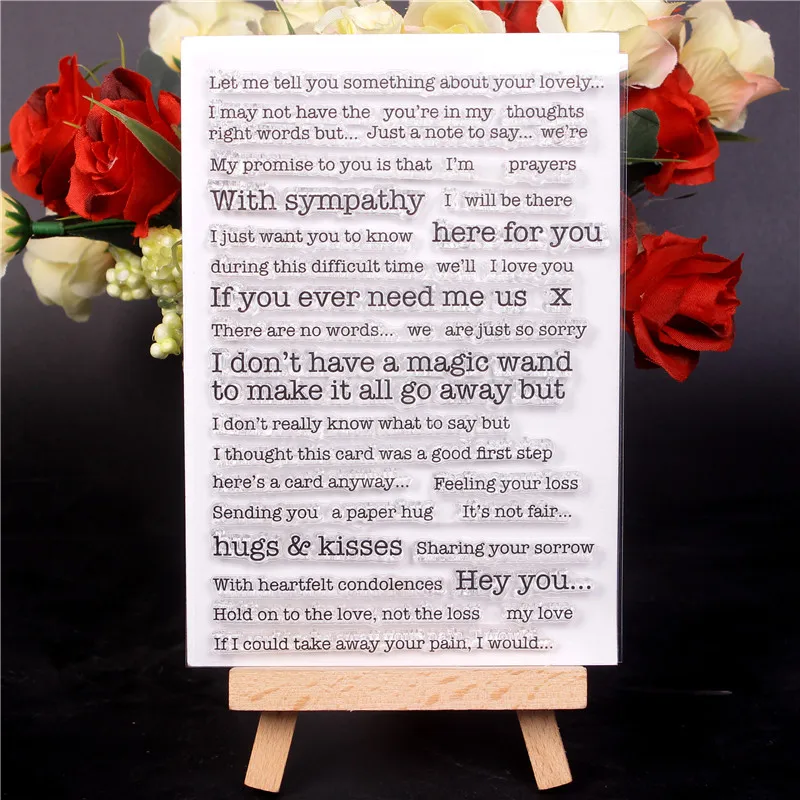 Let me tell you something about your lovely...
I may not have the you're in my thoughts
right words but... Just a note to say... we're
My promise to you is that I'm prayers
With sympathy I will be there
I just want you to know here for you
during this difficult time we'll I love you
If you ever need me us x
There are no words... we are just so sorry
I don't have a magic wand
to make it all go away but
I don't really know what to say but
I thought this card was a good first step
here's a card anyway... Feeling your loss
Sending you a paper hug It's not fair...
hugs & kisses Sharing your sorrow
With heartfelt condolences Hey you...
Hold on to the love, not the loss my love
If I could take away your pain, I would...